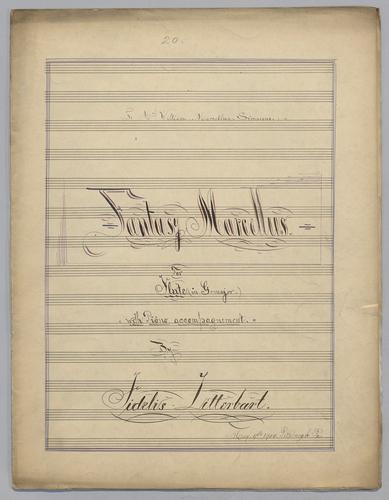 20.
To Mr. William Marcellus Simmons.
Fantasy Marcellus.
For
Flute (in G major)
with Piano accompagnement.
By
Fidelis Zitterbart.
1900. Pittsburgh Pa